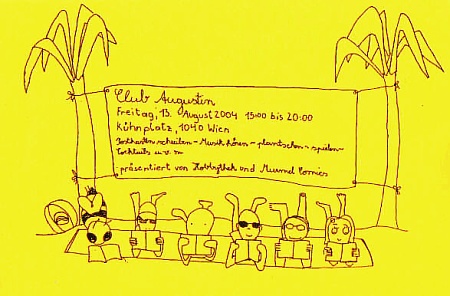 Club Augustin
Freitag, 13. August 2004 15:00 bis 20:00
Kühnplatz, 1040 Wien
Postkarten schreiben - Musik hören - plantschen - spielen -
Cocktails u.v.m
präsentiert von und Murmel Comics